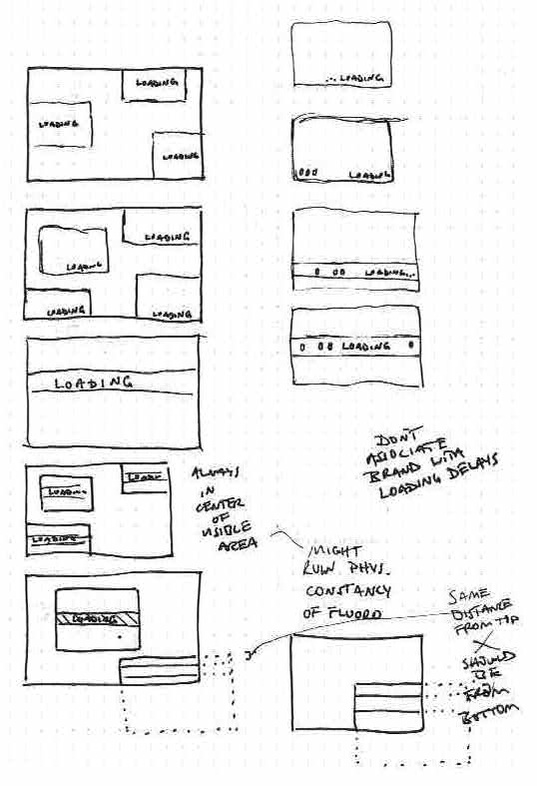 LOADING
LOADING
LOADING
LOADING
LOADING
LOADING
LOADING
LOADING
LOADING
LOADING
LOADING
ALWAYS
IN
CENTER
OF
VISIBLE
AREA
LOADING
... LOADING
000 LOADING
0 00 LOADING...
0 00 LOADING 0
DON'T
ASSOCIATE
BRAND WITH
LOADING DELAYS
MIGHT
RUIN PHYS.
CONSTANCY
OF
SAME
DISTANCE
FROM TOP
X
SHOULD
BE
FROM
BOTTOM